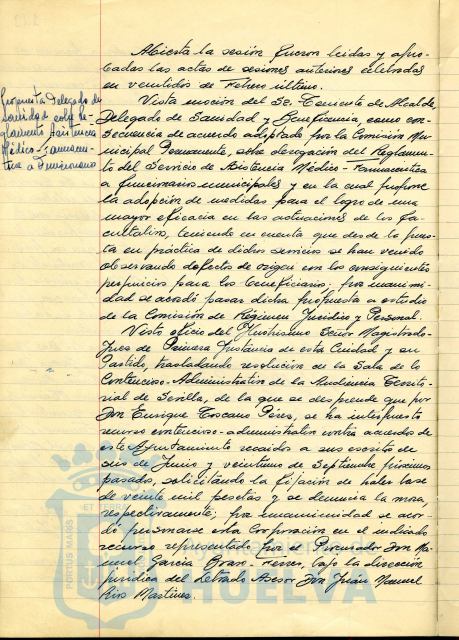 Abierta la sesión fueron leidas y apro-
badas las actas de sesiones anteriores celebradas
en veintidos de Febrero último.
Propuesta Delegado de
Sanidad sobre Re-
glamento Asistencia
Médico-Farmaceu-
tica a Funcionarios
Vista moción del Sr. Teniente de Alcalde,
Delegado de Sanidad y Beneficencia, como con-
secuencia de acuerdo adoptado por la Comisión Mu-
nicipal Permanente, sobre derogación del Reglamen-
to del Servicio de Asistencia Médico-Farmaceutica
a funcionarios municipales y en la cual propone
la adopción de medidas para el logro de una
mayor eficacia en las actuaciones de los fa-
cultativos, teniendo en cuenta que desde la pues-
ta en práctica de dichos servicios se han venido
observando defectos de origen con los consiguientes
perjuicios para los beneficiarios; por unanimi-
dad se acordó pasar dicha propuesta a estudio
de la Comisión de Régimen Jurídico y Personal.
Visto oficio del Ilustrisimo Señor Magistrado-
Juez de Primera Instancia de esta Ciudad y su
Partido, trasladando resolución de la Sala de lo
Contencioso-Administrativo de la Audiencia Territo-
rial de Sevilla, de la que se desprende que por
Don Enrique Toscano Pérez, se ha interpuesto
recurso contencioso-administrativo contra acuerdos de
este Ayuntamiento recaidos a sus escritos de
seis de Junio y veintiuno de Septiembre próximos
pasado, solicitando la fijación de haber base
de veinte mil pesetas y se denuncia la mora,
respectivamente; por unanimidad se acor-
dó personarse esta Corporación en el indicado
recurso representado por el Procurador Don Ma-
nuel Garcia Bravo-Ferrer, bajo la dirección
juridica del Letrado Asesor Don Juán Manuel
Rios Martinez.
PORTUS MARIS ET TERRAE
Ayuntamiento de
HUELVA